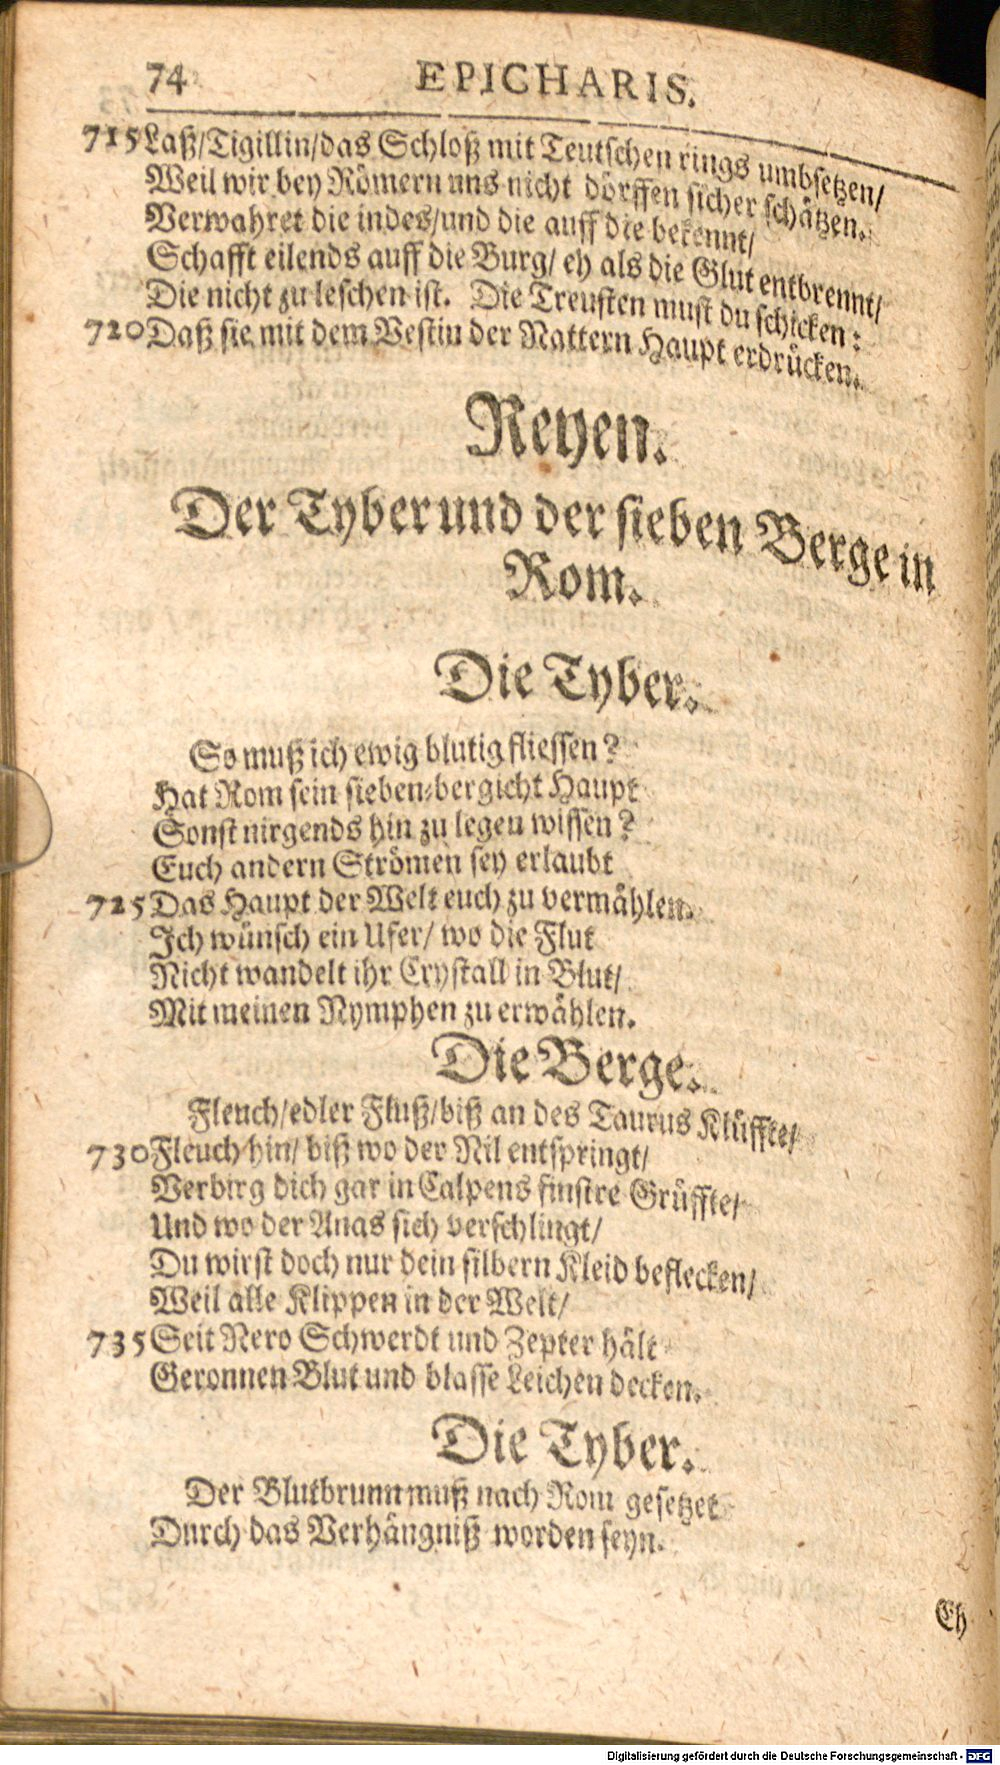 74 EPICHARIS.
715 Laß/Tigillin/das Schloß mit Teutschen rings umbsetzen/
Weil wir bey Römern uns nicht dörffen sicher schätzen.
Verwahret die indes/und die auff die bekennt/
Schafft eilends auff die Burg/ eh als die Glut entbrennt/
Die nicht zu leschen ist. Die Treusten must du schicken:
720 Daß sie mit dem Vestin der Nattern Haupt erdrücken.
Reyen.
Der Tyber und der sieben Berge in
Rom.
Die Tyber.
So muß ich ewig blutig fliessen?
Hat Rom sein sieben-bergicht Haupt
Sonst nirgends hin zu legen wissen?
Euch andern Strömen sey erlaubt
725 Das Haupt der Welt euch zu vermählen.
Ich wünsch ein Ufer/ wo die Flut
Nicht wandelt ihr Crystall in Blut/
Mit meinen Nymphen zu erwählen.
Die Berge.
Fleuch/edler Fluß/biß an des Taurus Klüffte/
730 Fleuch hin/ biß wo der Nil entspringt/
Verbirg dich gar in Calpens finstre Grüffte/
Und wo der Anas sich verschlingt/
Du wirst doch nur dein silbern Kleid beflecken/
Weil alle Klippen in der Welt/
735 Seit Nero Schwerdt und Zepter hält
Geronnen Blut und blasse Leichen decken.
Die Tyber.
Der Blutbrunn muß nach Rom gesetzet
Durch das Verhängniß worden seyn.
Eh
Digitalisierung gefördert durch die Deutsche Forschungsgemeinschaft - DFG